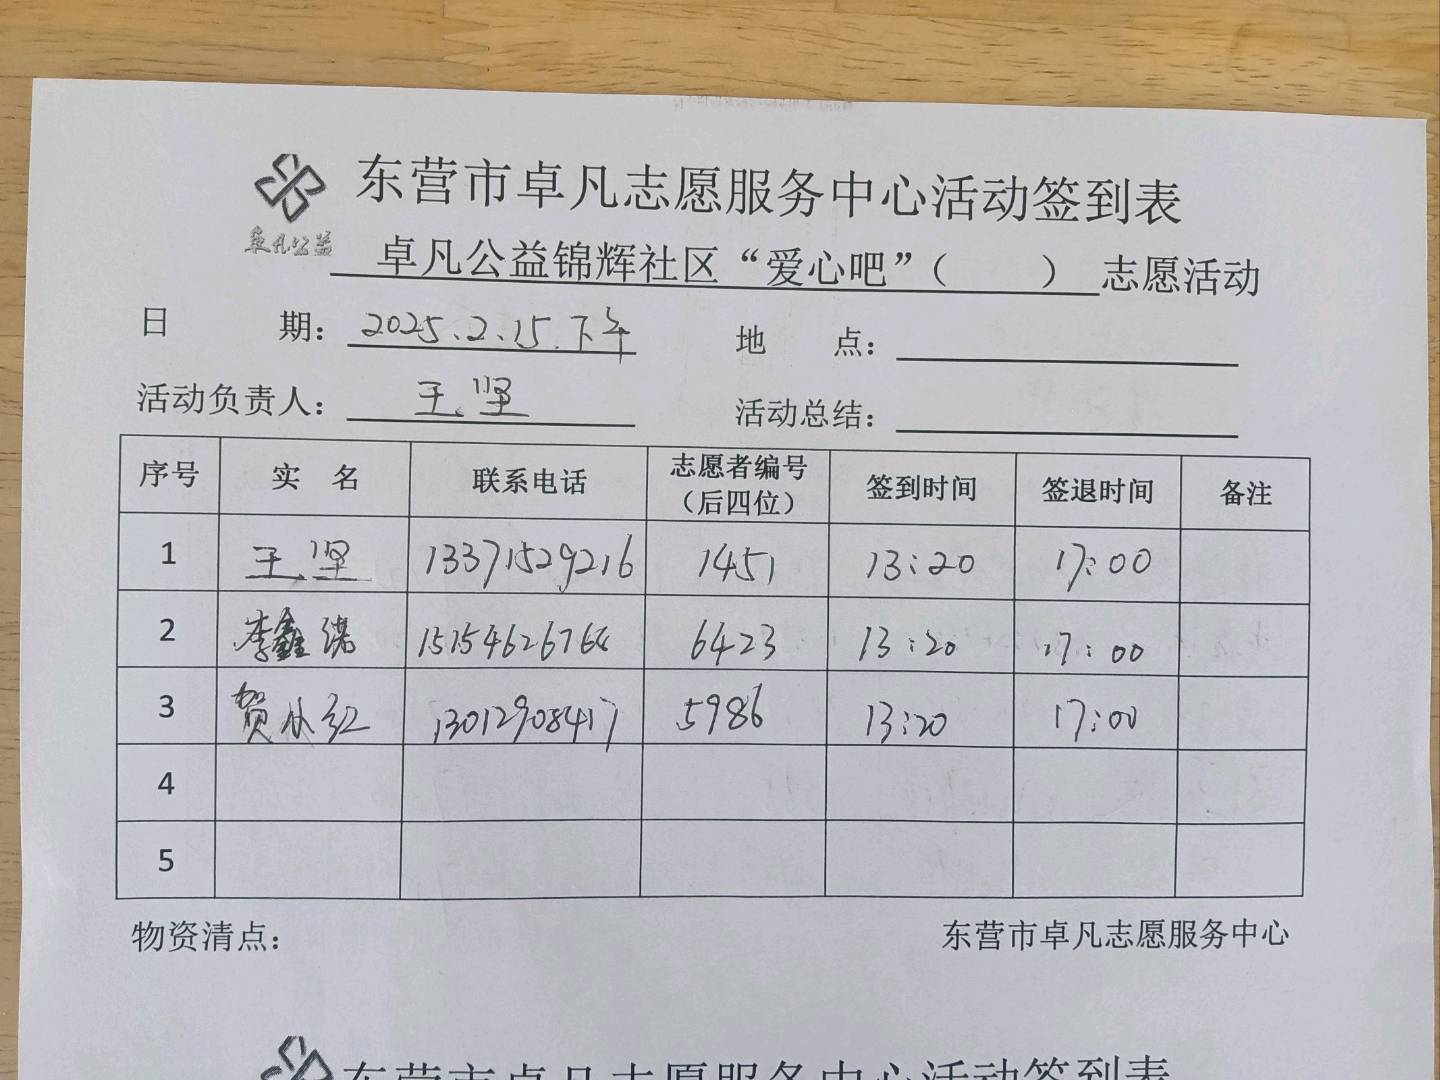 东营市卓凡志愿服务中心活动签到表
卓凡公益
卓凡公益锦辉社区“爱心吧”（　　）志愿活动
日　期： 2025.2.15.下午　地　点：
活动负责人： 王坚　活动总结：
序号　实　名　联系电话　志愿者编号（后四位）　签到时间　签退时间　备注
1　王坚　13371529216　1451　13:20　17:00
2　李鑫　6423　13:20　17:00
3　贺　红　13012908417　5986　13:20　17:00
4
5
物资清点：　东营市卓凡志愿服务中心
东营市卓凡志愿服务中心活动签到表